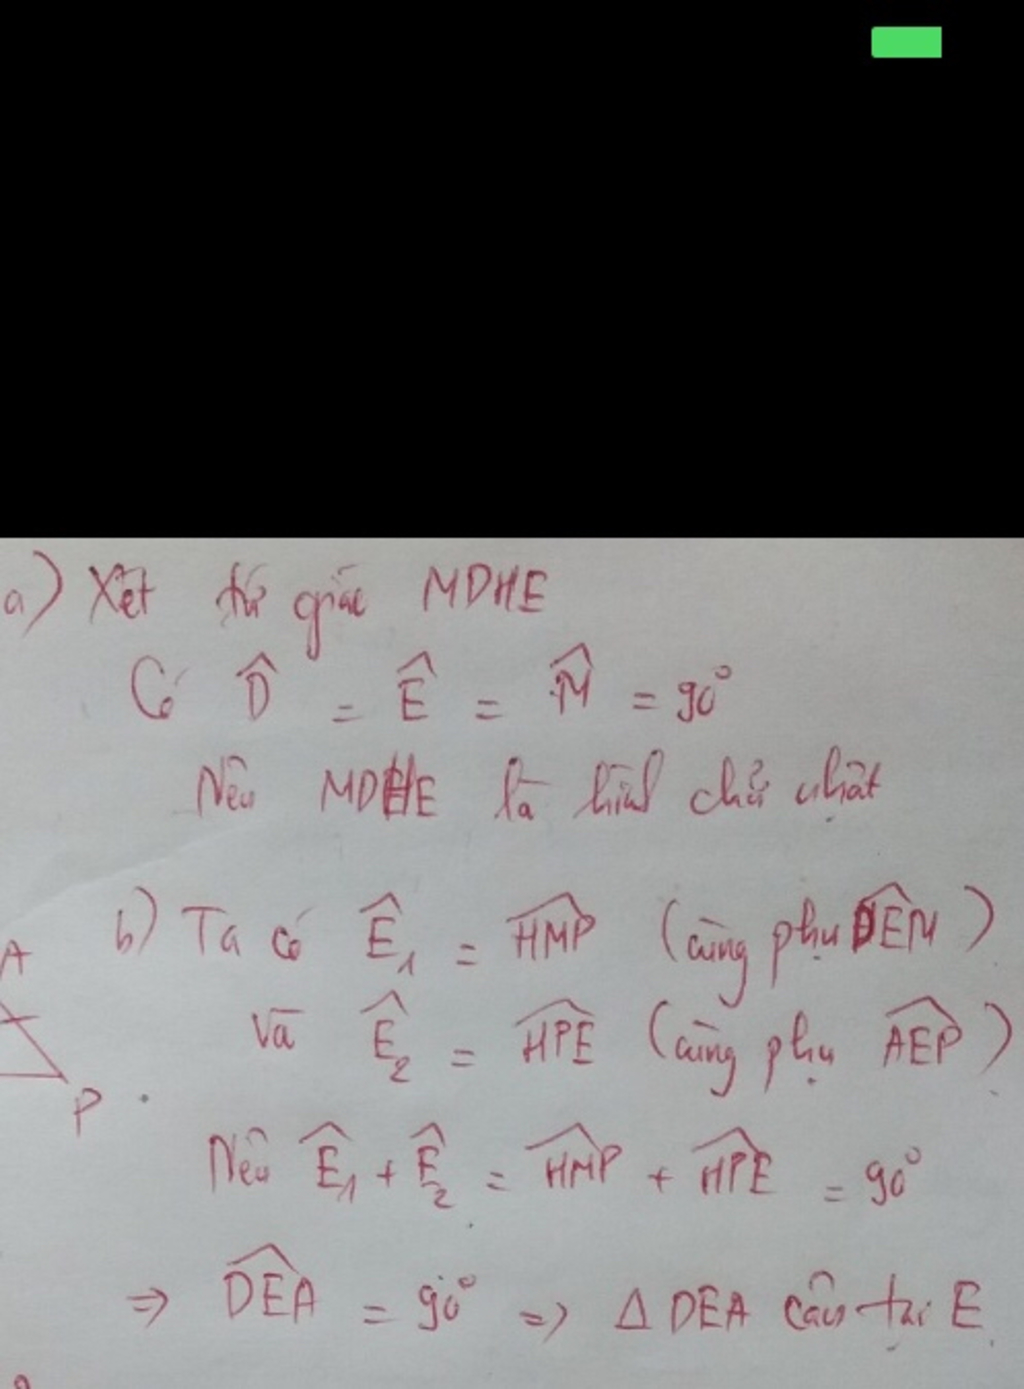 a) Xét tứ giác MDHE
Có D̂ = Ê = M̂ = 90°
Nên MDHE là hình chữ nhật
b) Ta có Ê₁ = HMP̂ (cùng phụ DEM̂)
A
và Ê₂ = HPÊ (cùng phụ AEP̂)
P
Nên Ê₁ + Ê₂ = HMP̂ + HPÊ = 90°
=> DEÂ = 90° => Δ DEA cân tại E